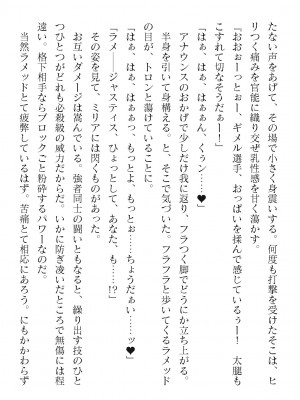 たない声をあげて、その場で小さく身震いする。何度も打撃を受けたそこは、ヒ
リつく痛みを官能に織り交ぜ乳性感を甘く蕩かす。
「おおぉーっとぉー、ギメル選手、おっぱいを揉んで感じているぅー! 太腿も
こすれて切なそうだぁー!」
「はぁ、はぁ、はぁぁん、くぅン…♥」
アナウンスのおかげで少しだけ我に返り、フラつく脚でどうにか立ち上がる。
半身を引いて身構える。と、そこで気づいた。フラフラと歩いてくるラメッド
の目が、トロンと蕩けていることに。
「はぁ、はぁ、はぁぁっ、もっとよ、もっとぉ…ちょうだぁい…ッ♥」
「ラメ――ジャスティス、ひょっとして、あなた、も……!?」
その姿を見て、ミリアには閃くものがあった。
お互いダメージは嵩んでいる。強者同士の闘いともなると、繰り出す技のひと
つひとつがどれも必殺級の威力だからだ。いかに防ぎ凌いだところで無傷には程
遠い。格下相手ならブロックごと粉砕するパワーなのだ。
当然ラメッドとて疲弊しているはず。苦痛とて相応にあろう。にもかかわらず